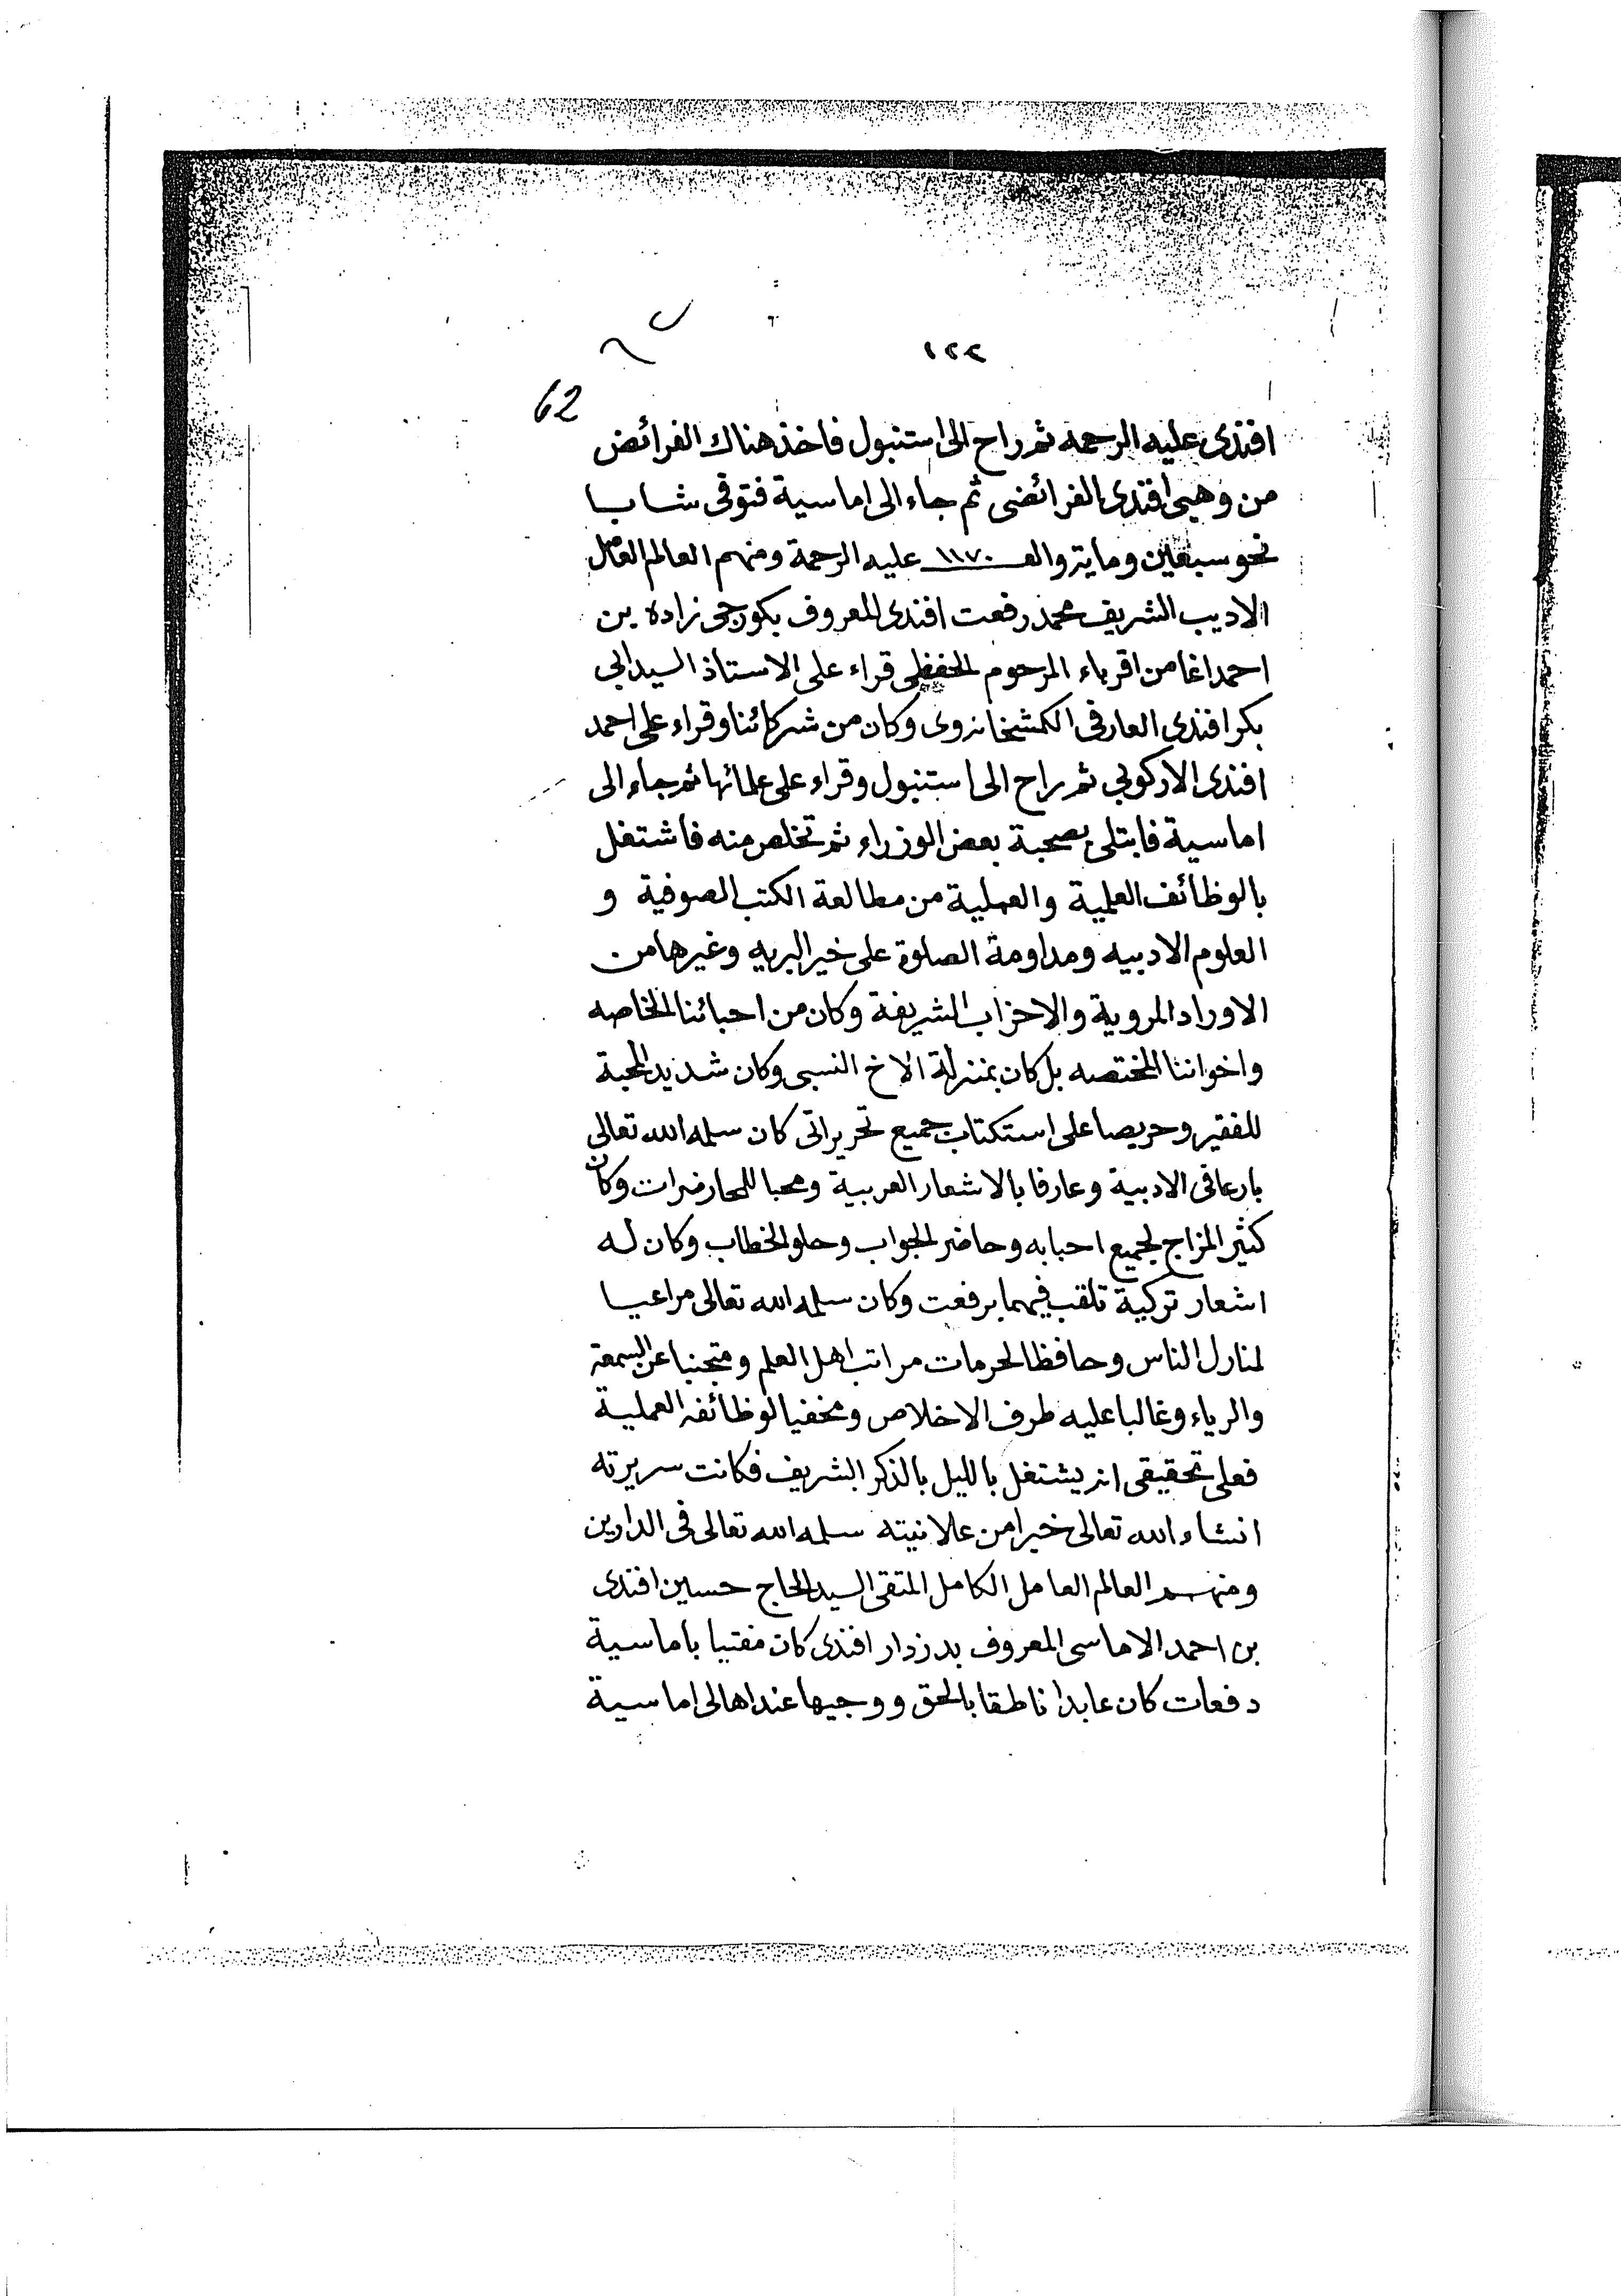 ١٢٢
62
افندى عليه الرحمه ثم راح الى استنبول فاخذ هناك الفرائض
من وهبى افندى الفرائضى ثم جاء الى اماسية فتوفى شابا
نحو سبعين وماية والف ١١٧٠ عليه الرحمة ومنهم العالم العامل
الاديب الشريف محمد رفعت افندى المعروف بكورجى زاده بن
احمد اغا من اقرباء المرحوم الحفظى قراء على الاستاذ السيد ابى
بكر افندى العارفى الكمشخانوى وكان من شركائنا وقراء على احمد
افندى الادكوبى ثم راح الى استنبول وقراء على علمائها ثم جاء الى
اماسية فابتلى بصحبة بعض الوزراء ثم تخلص منه فاشتغل
بالوظائف العلمية والعملية من مطالعة الكتب الصوفية و
العلوم الادبيه ومداومة الصلوة على خير البريه وغيرها من
الاوراد المروية والاحزاب الشريفة وكان من احبائنا الخاصه
واخواننا المختصه بل كان بمنزلة الاخ النسبى وكان شديد المحبة
للفقير وحريصا على استكتاب جميع تحريراتى كان سلمه الله تعالى
بارعا فى الادبية وعارفا بالاشعار العربية ومحبا للمحاضرات وكان
كثير المزاج لجميع احبابه وحاضر الجواب وحلو الخطاب وكان له
اشعار تركية تلقب فيهما برفعت وكان سلمه الله تعالى مراعيا
لمنازل الناس وحافظا لحرمات مراتب اهل العلم ومتجنبا عن السمعة
والرياء وغالبا عليه طرف الاخلاص ومخفيا لوظائفه العملية
فعلى تحقيقى انه يشتغل بالليل بالذكر الشريف فكانت سريرته
انشاء الله تعالى خيرا من علانيته سلمه الله تعالى فى الدارين
ومنهم العالم العامل الكامل المتقى السيد الحاج حسين افندى
بن احمد الاماسى المعروف بدزدار افندى كان مفتيا باماسية
دفعات كان عابدا ناطقا بالحق ووجيها عند اهالى اماسية